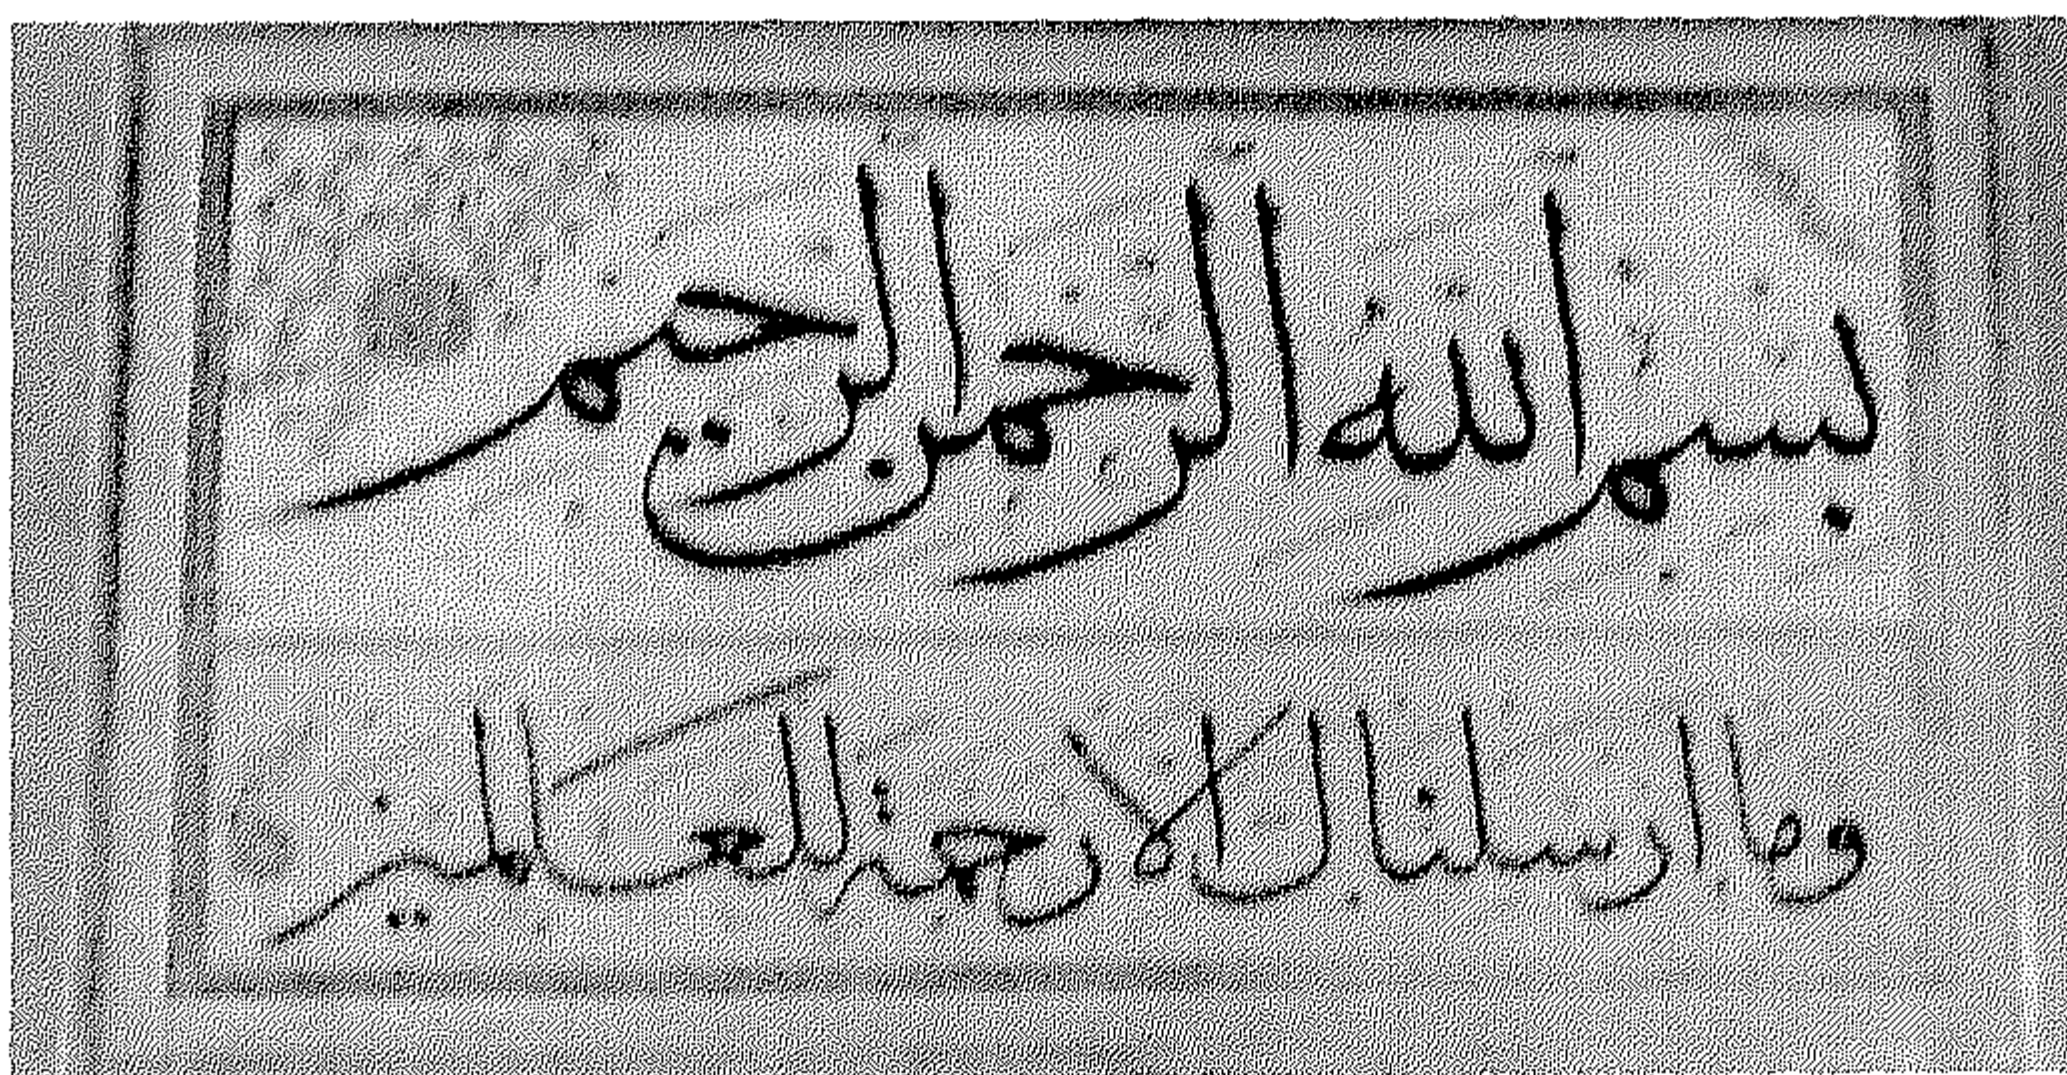 بسم الله الرحمن الرحيم
وما ارسلناك الا رحمة للعالمين